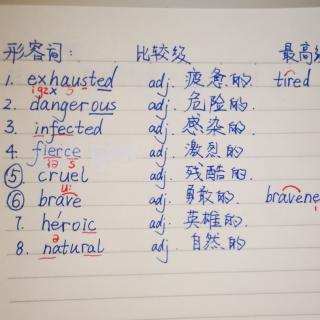 形容词: 比较级 最高级
1. exhausted adj. 疲惫的. tired
igzɔ s
2. dangerous adj. 危险的.
3. infected adj. 感染的.
4. fierce adj. 激烈的
iə s
⑤ cruel adj. 残酷的
u:
⑥ brave adj. 勇敢的.
7. heróic adj. 英雄的.
ə
8. natural adj. 自然的